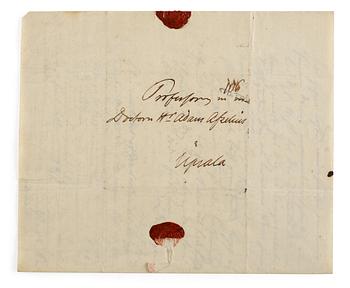 Professoren m m
Doctorn Hr Adam Afzelius
i
Upsala